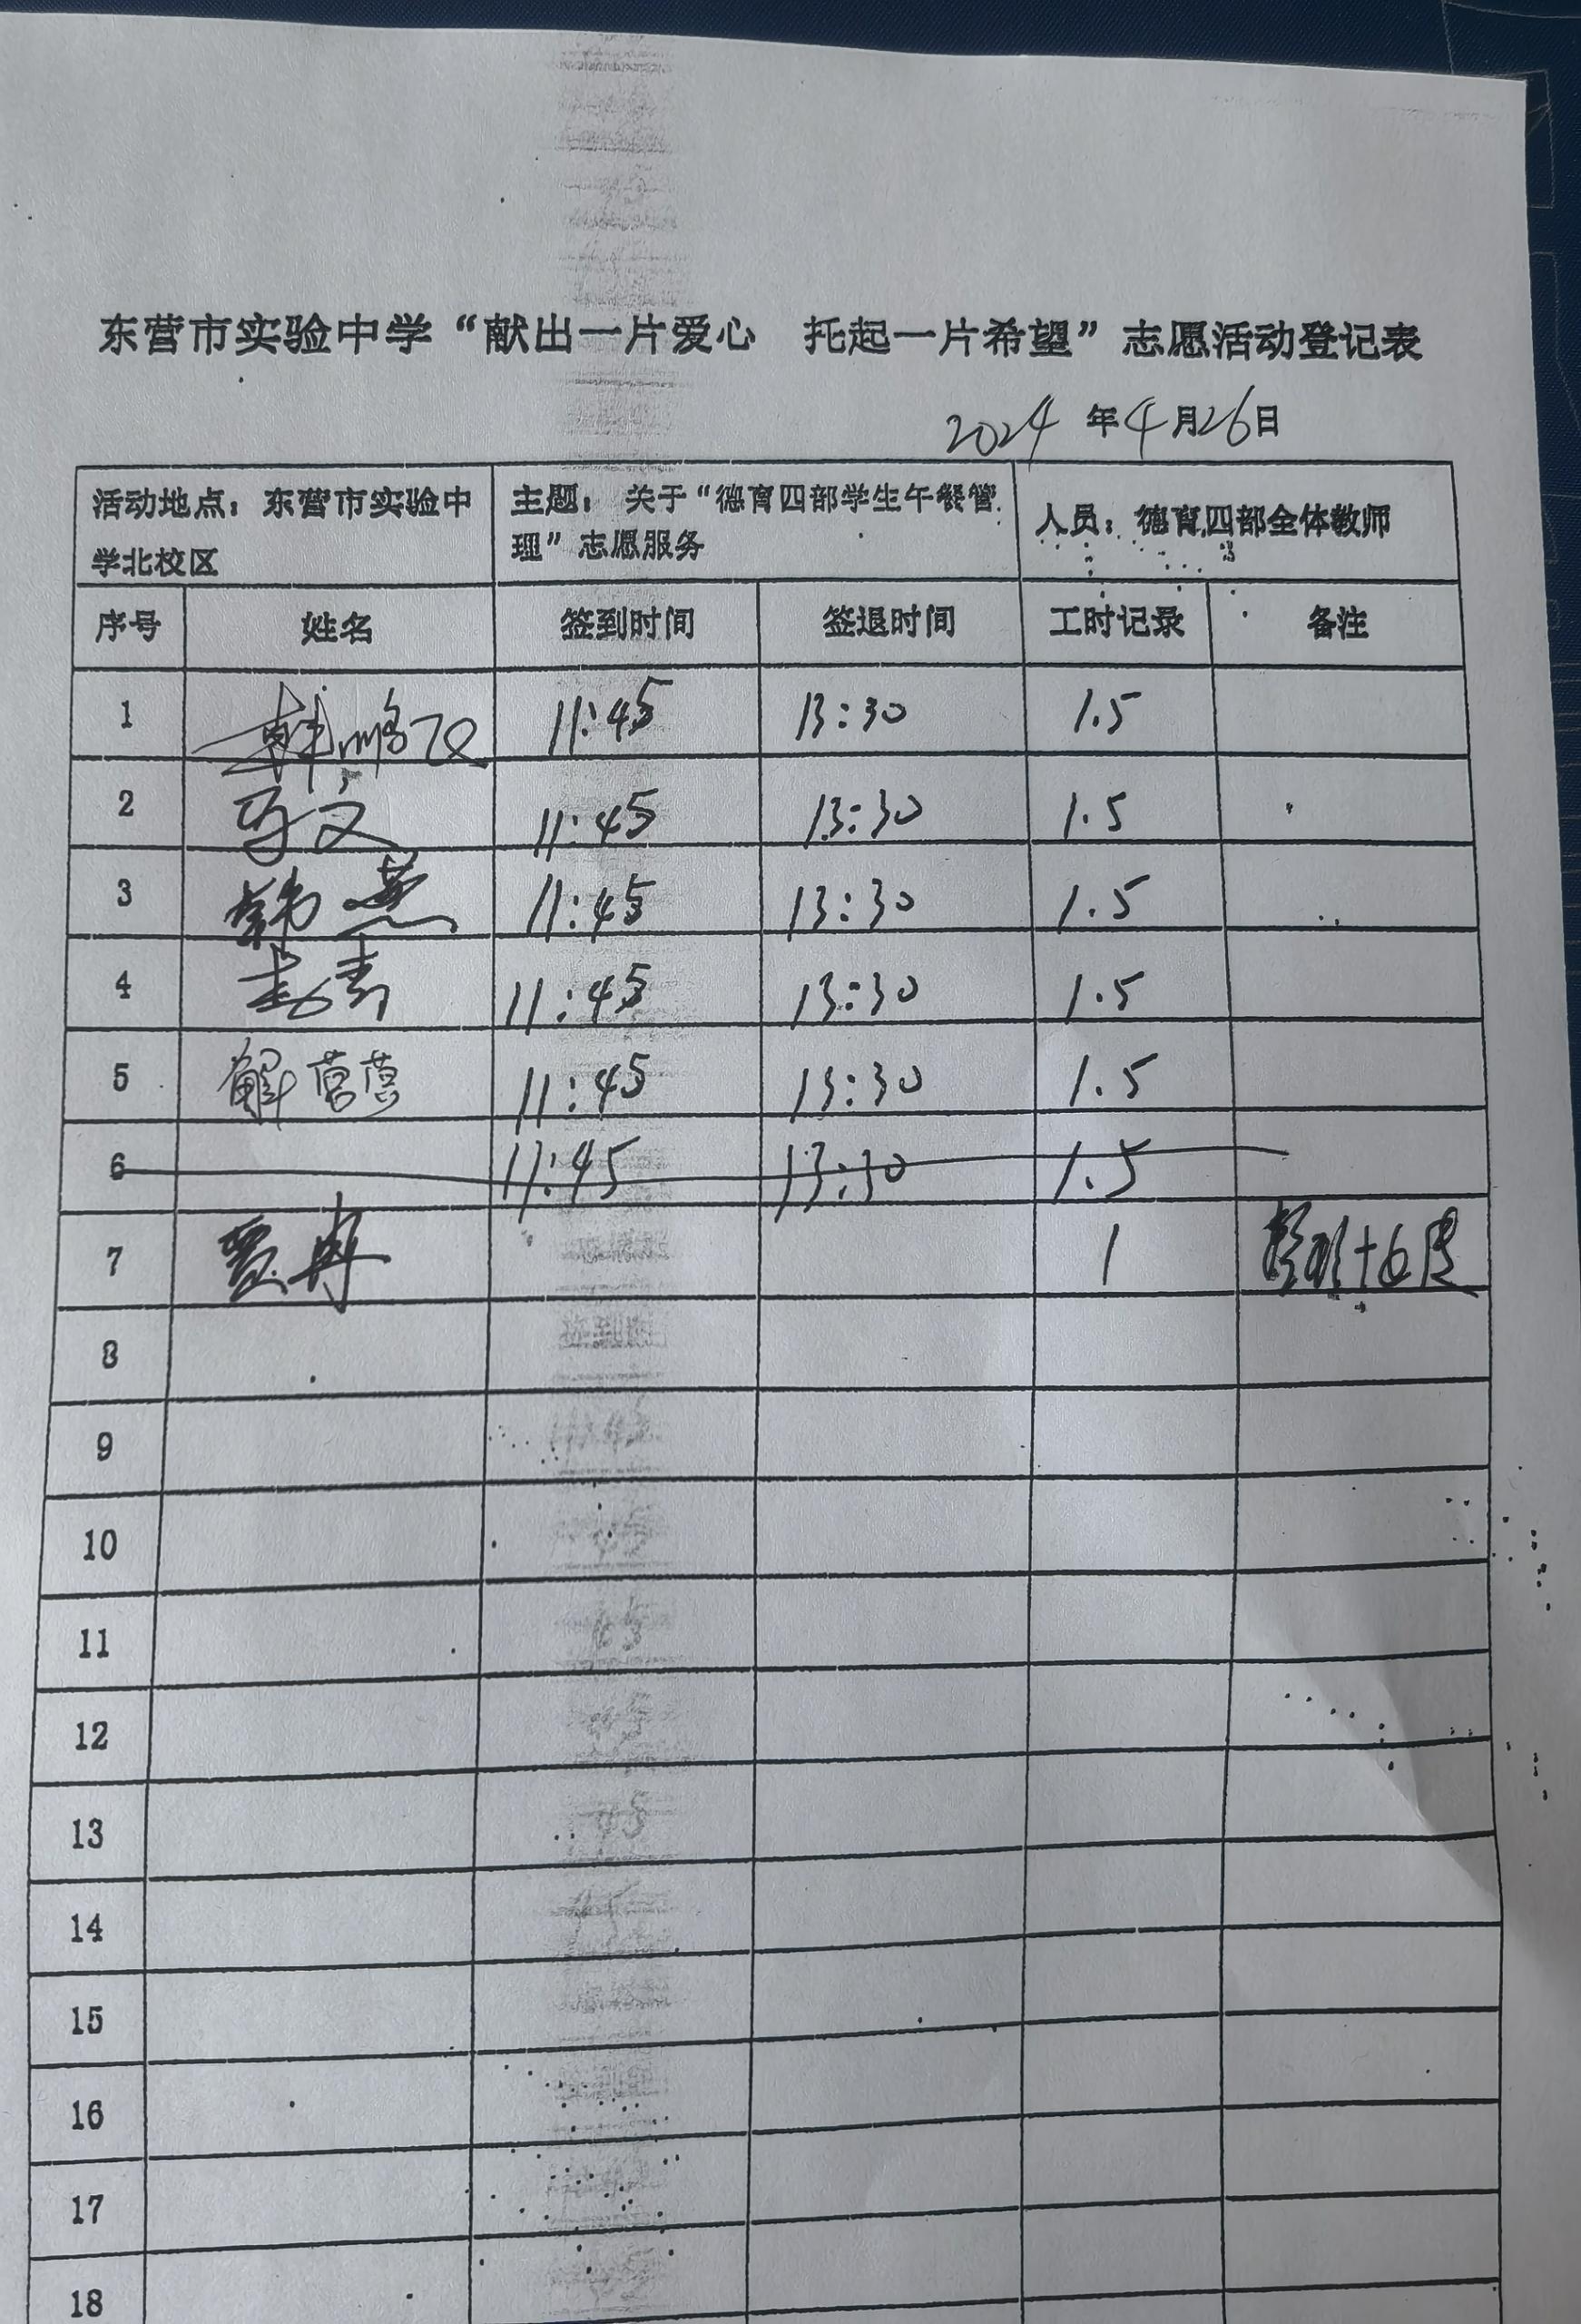 东营市实验中学“献出一片爱心 托起一片希望”志愿活动登记表
2024年4月26日
活动地点：东营市实验中学北校区 主题：关于“德育四部学生午餐管理”志愿服务 人员：德育四部全体教师
序号 姓名 签到时间 签退时间 工时记录 备注
1 11:45 13:30 1.5
2 马文 11:45 13:30 1.5
3 韩燕 11:45 13:30 1.5
4 11:45 13:30 1.5
5 解莹莹 11:45 13:30 1.5
6 11:45 13:30 1.5
7 贾冉 1
8
9
10
11
12
13
14
15
16
17
18